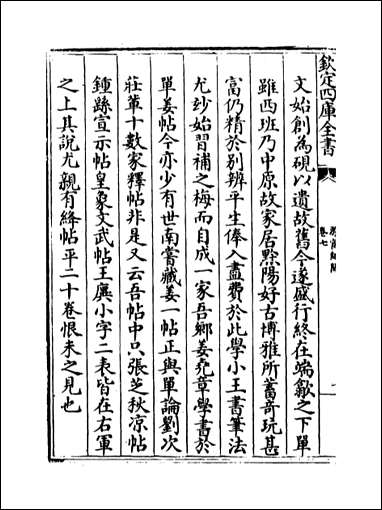 欽定四庫全書
卷七
文始創為硯以遺故舊今遂盛行終在端歙之下單
雖西班乃中原故家居黟陽好古博雅所蓄奇玩甚
富仍精於別辨平生俸入盡費於此學小王書筆法
尤妙始習補之梅而自成一家吾鄉姜堯章學書於
單姜帖今亦少有世南嘗藏姜一帖正與單論劉次
莊輩十數家釋帖非是又云吾帖中只張芝秋涼帖
鍾繇宣示帖皇象文武帖王廙小字二表皆在右軍
之上其說尤親有絳帖平二十卷恨未之見也